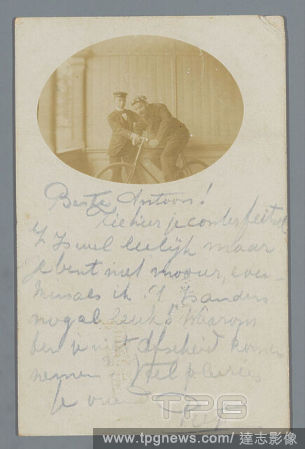 Beste Antoon!
Ziehier je conterfeitsel
't Is wel leelijk maar
je bent niet mooier, even
min als ik. 't Is anders
nogal leuk? Waarom
ben je niet afscheid komen
nemen
Veel plezier
je vriend
TPG
www.tpgnews.com/ 達志影像